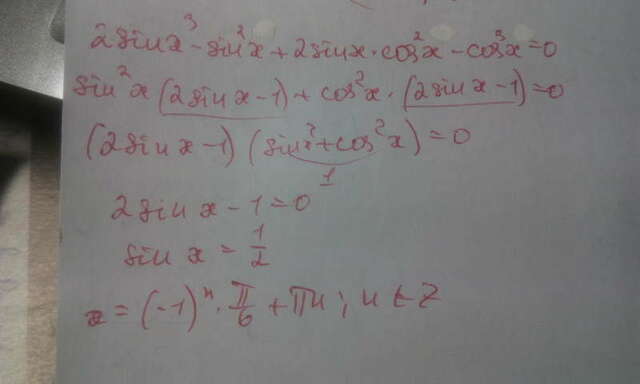 2sinx³ - sin²x + 2sinx·cos²x - cos³x = 0
sin²x (2sin x - 1) + cos²x · (2sin x - 1) = 0
(2sin x - 1) (sinx² + cos²x) = 0
1
2sin x - 1 = 0
sin x = 1/2
x = (-1)ⁿ · π/6 + πn; n ∈ Z